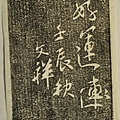 好運連
壬辰秋
文祥